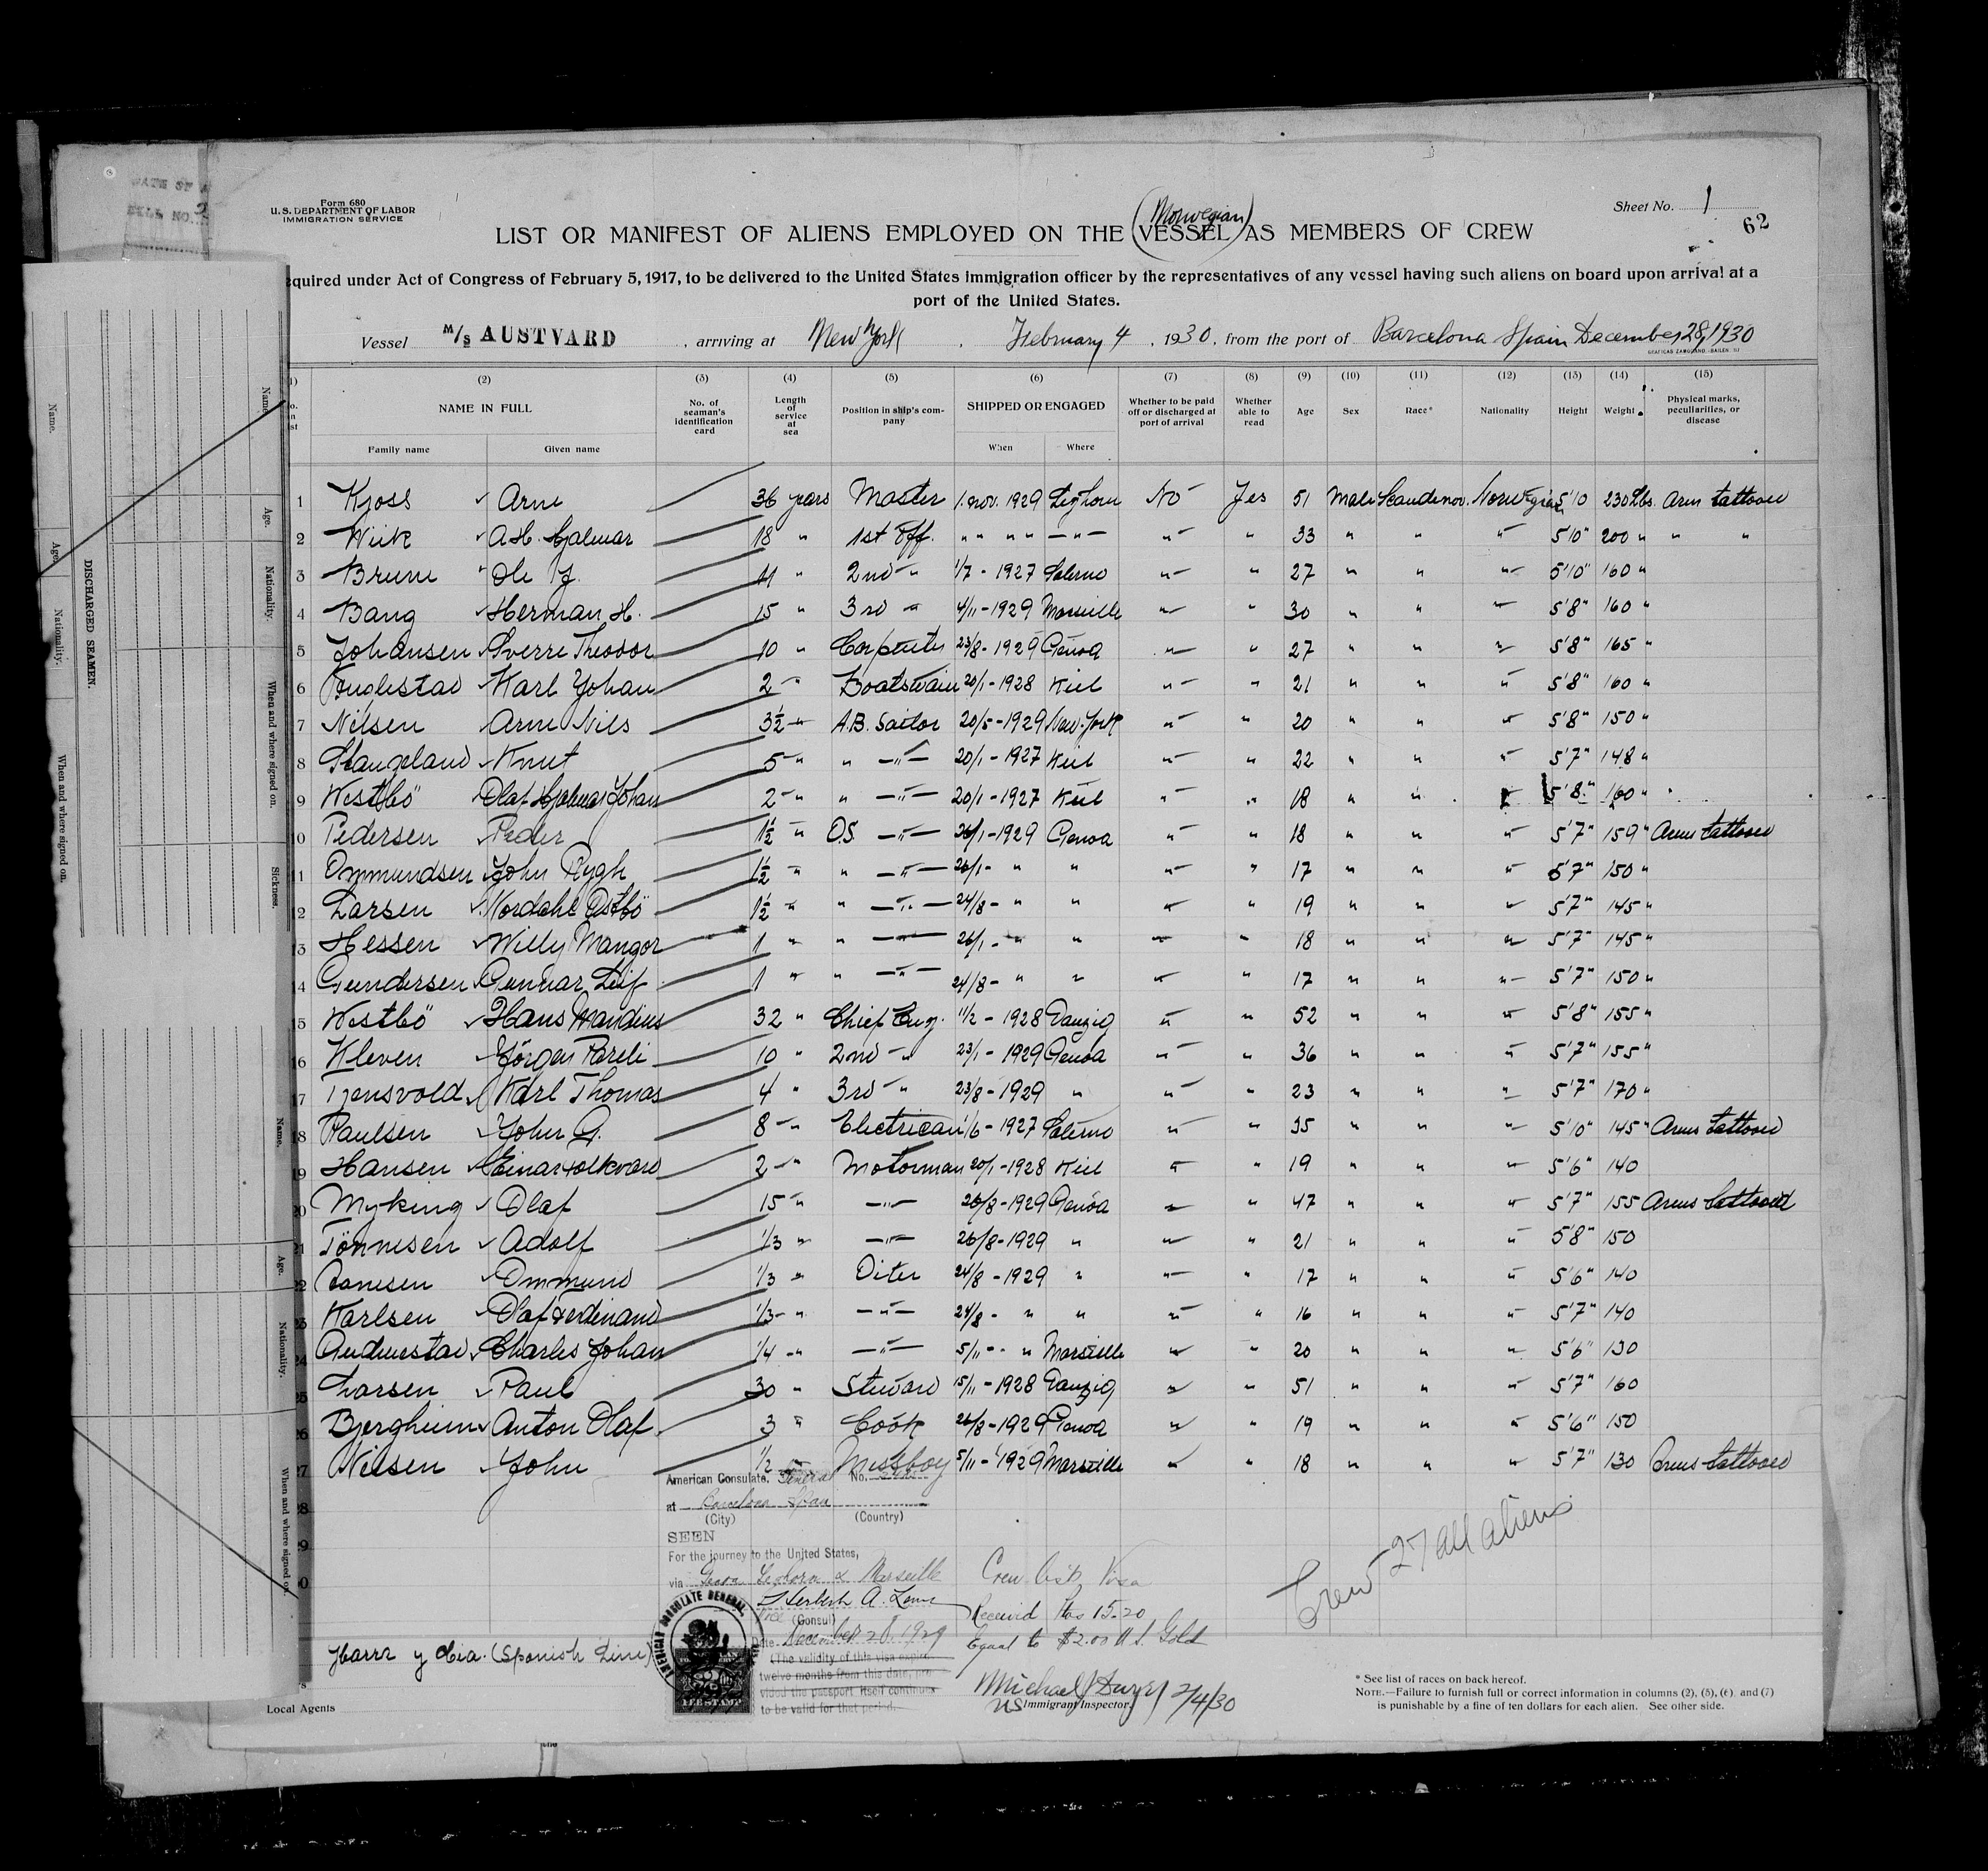 Form 680
U. S. DEPARTMENT OF LABOR
IMMIGRATION SERVICE
Sheet No. 1
62
(Norwegian)
LIST OR MANIFEST OF ALIENS EMPLOYED ON THE VESSEL AS MEMBERS OF CREW
equired under Act of Congress of February 5, 1917, to be delivered to the United States immigration officer by the representatives of any vessel having such aliens on board upon arrival at a
port of the United States.
Vessel M/S AUSTVARD , arriving at New York , February 4 , 1930, from the port of Barcelona Spain December 28, 1930
(2) (3) (4) (5) (6) (7) (8) (9) (10) (11) (12) (13) (14) (15)
NAME IN FULL No. of seaman's identification card Length of service at sea Position in ship's company SHIPPED OR ENGAGED Whether to be paid off or discharged at port of arrival Whether able to read Age Sex Race* Nationality Height Weight Physical marks, peculiarities, or disease
Family name Given name When Where
1 Kjoss Arne 36 years Master 1. nov. 1929 Leghorn No Yes 51 Male Scandinav. Norwegian 5'10 230 lbs. Arm tattooed
2 Wiik A.H. Hjalmar 18 " 1st Off. " " " " — " — " " 33 " " " 5'10" 200 " " "
3 Bruun Ole J. 11 " 2nd " 1/7 - 1927 Salerno " " 27 " " " 5'10" 160 "
4 Bang Herman H. 15 " 3rd " 4/11 - 1929 Marseille " " 30 " " " 5'8" 160 "
5 Johansen Sverre Theodor 10 " Carpenter 23/8 - 1929 Genoa " " 27 " " " 5'8" 165 "
6 Fuglestad Karl Johan 2 " Boatswain 20/1 - 1928 Kiel " " 21 " " " 5'8" 160 "
7 Nilsen Arne Nils 3½ " A.B. Sailor 20/5 - 1929 New-York " " 20 " " " 5'8" 150 "
8 Slangeland Knut 5 " " — " — 20/1 - 1927 Kiel " " 22 " " " 5'7" 148 "
9 Westbö Olaf Hjalmar Johan 2 " " — " — 20/1 - 1927 Kiel " " 18 " " " 5'8" 160 "
10 Pedersen Peder 1½ " O.S — " — 26/1 - 1929 Genoa " " 18 " " " 5'7" 159 " Arms tattooed
11 Ommundsen John Rygh 1½ " " — " — 26/1 - " " " " 17 " " " 5'7" 150 "
12 Larsen Nordahl Ostbö 1½ " " — " — 24/8 - " " " " 19 " " " 5'7" 145 "
13 Hessen Willy Mangor 1 " " — " — 26/1 - " " " " 18 " " " 5'7" 145 "
14 Gundersen Gunnar Leif 1 " " — " — 24/8 - " " " " 17 " " " 5'7" 150 "
15 Westbö Hans Mandius 32 " Chief Eng. 11/2 - 1928 Danzig " " 52 " " " 5'8" 155 "
16 Kleven Jörgen Pareli 10 " 2nd " 23/1 - 1929 Genoa " " 36 " " " 5'7" 155 "
17 Tjensvold Karl Thomas 4 " 3rd " 23/8 - 1929 " " " 23 " " " 5'7" 170 "
18 Paulsen John G. 8 " Electrican 1/6 - 1927 Salerno " " 35 " " " 5'10" 145 " Arms tattooed
19 Hansen Einar Folkvard 2 " Motorman 20/1 - 1928 Kiel " " 19 " " " 5'6" 140
20 Myking Olaf 15 " — " — 26/8 - 1929 Genoa " " 47 " " " 5'7" 155 Arms tattooed
21 Tönnesen Adolf 1/3 " — " — 26/8 - 1929 " " " 21 " " " 5'8" 150
22 Ommund 1/3 " Oiler 24/8 - 1929 " " " 17 " " " 5'6" 140
23 Karlsen Olaf Ferdinand 1/3 " — " — 24/8 - " " " " 16 " " " 5'7" 140
24 Charles Johan 1/4 " — " — 5/11 - " Marseille " " 20 " " " 5'6" 130
25 Larsen Paul 30 " Steward 15/11 - 1928 Danzig " " 51 " " " 5'7" 160
26 Bjergheim Anton Olaf 3 " Cook 26/8 - 1929 Genoa " " 19 " " " 5'6" 150
27 Nilsen John 1/2 " Messboy 5/11 - 1929 Marseille " " 18 " " " 5'7" 130 Arms tattooed
28
29
30
American Consulate General No.
at Barcelona Spain
(City) (Country)
SEEN
For the journey to the United States,
via Genoa Leghorn & Marseille
Herbert A.
Vice (Consul)
Date December 28, 1929
(The validity of this visa expires
twelve months from this date, pro-
vided the passport itself continues
to be valid for that period.
AMERICAN CONSULATE GENERAL
FEE STAMP
Crew list Visa
Received Ptas 15.20
Equal to $2.00 U.S. Gold
Crew 27 all aliens
Ybarra y Cia. (Spanish Line)
Local Agents
Michael J Dwyer 2/4/30
US Immigrant Inspector.
* See list of races on back hereof.
NOTE.—Failure to furnish full or correct information in columns (2), (5), (6) and (7)
is punishable by a fine of ten dollars for each alien. See other side.
DISCHARGED SEAMEN.
Name.
Age.
Nationality.
When and where signed on.
Sickness.
Name.
Age.
Nationality.
When and where signed on.
Name.
Age.
Nationality.
When and where signed on.